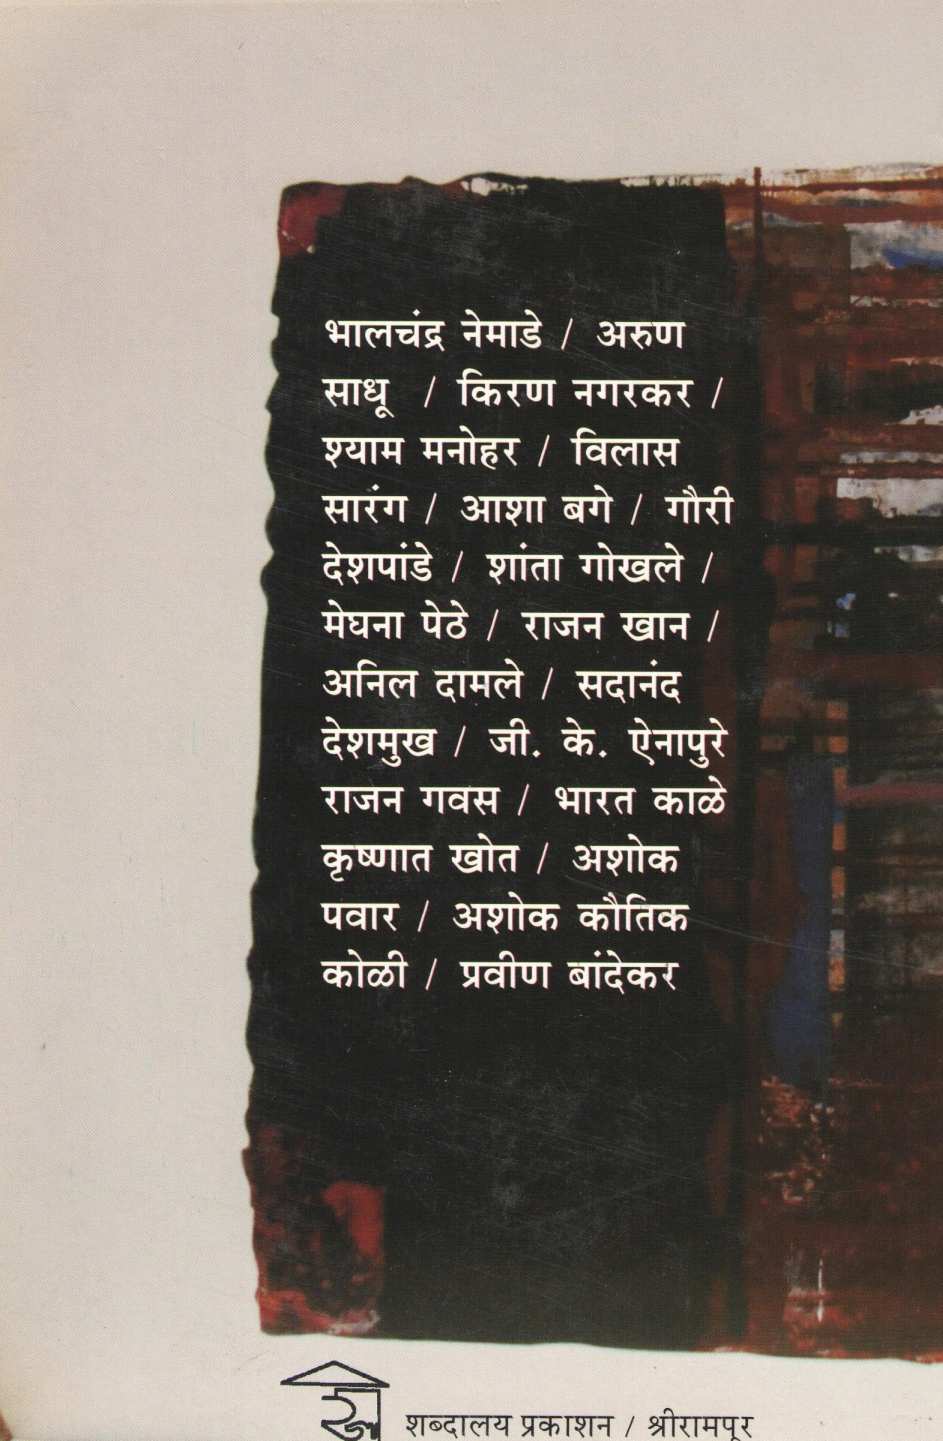 भालचंद्र नेमाडे / अरुण
साधू / किरण नगरकर /
श्याम मनोहर / विलास
सारंग / आशा बगे / गौरी
देशपांडे / शांता गोखले /
मेघना पेठे / राजन खान /
अनिल दामले / सदानंद
देशमुख / जी. के. ऐनापुरे
राजन गवस / भारत काळे
कृष्णात खोत / अशोक
पवार / अशोक कौतिक
कोळी / प्रवीण बांदेकर
शब्दालय प्रकाशन / श्रीरामपूर